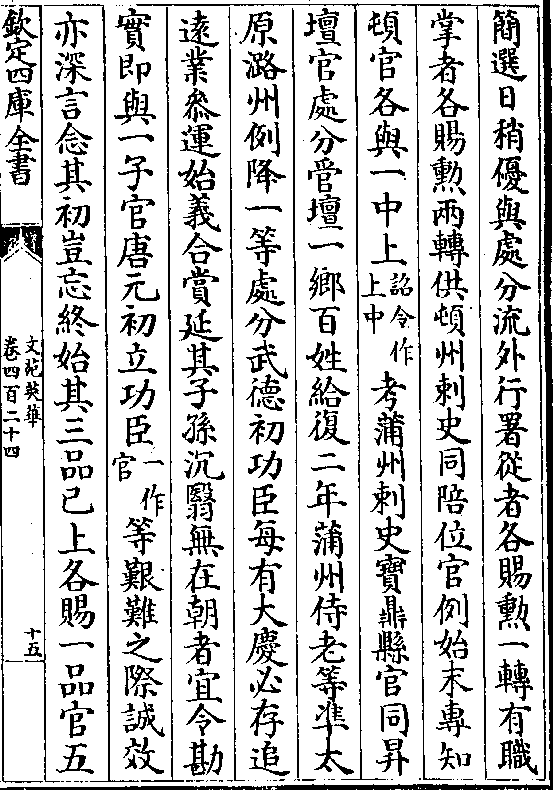 簡選日稍優與處分流外行署從者各賜勲一轉有職
掌者各賜勲兩轉供頓州刺史同陪位官例始末專知
頓官各與一中上詔令作上中考蒲州刺史寶鼎縣官同昇
壇官處分管壇一鄉百姓給復二年蒲州侍老等準太
原潞州例降一等處分武德初功臣每有大慶必存追
逺業叅運始義合賞延其子孫沉翳無在朝者宜令勘
實即與一子官唐元初立功臣一作官等艱難之際誠效
亦深言念其初豈忘終始其三品已上各賜一品官五
欽定四庫全書
文苑英華
卷四百二十四
十五